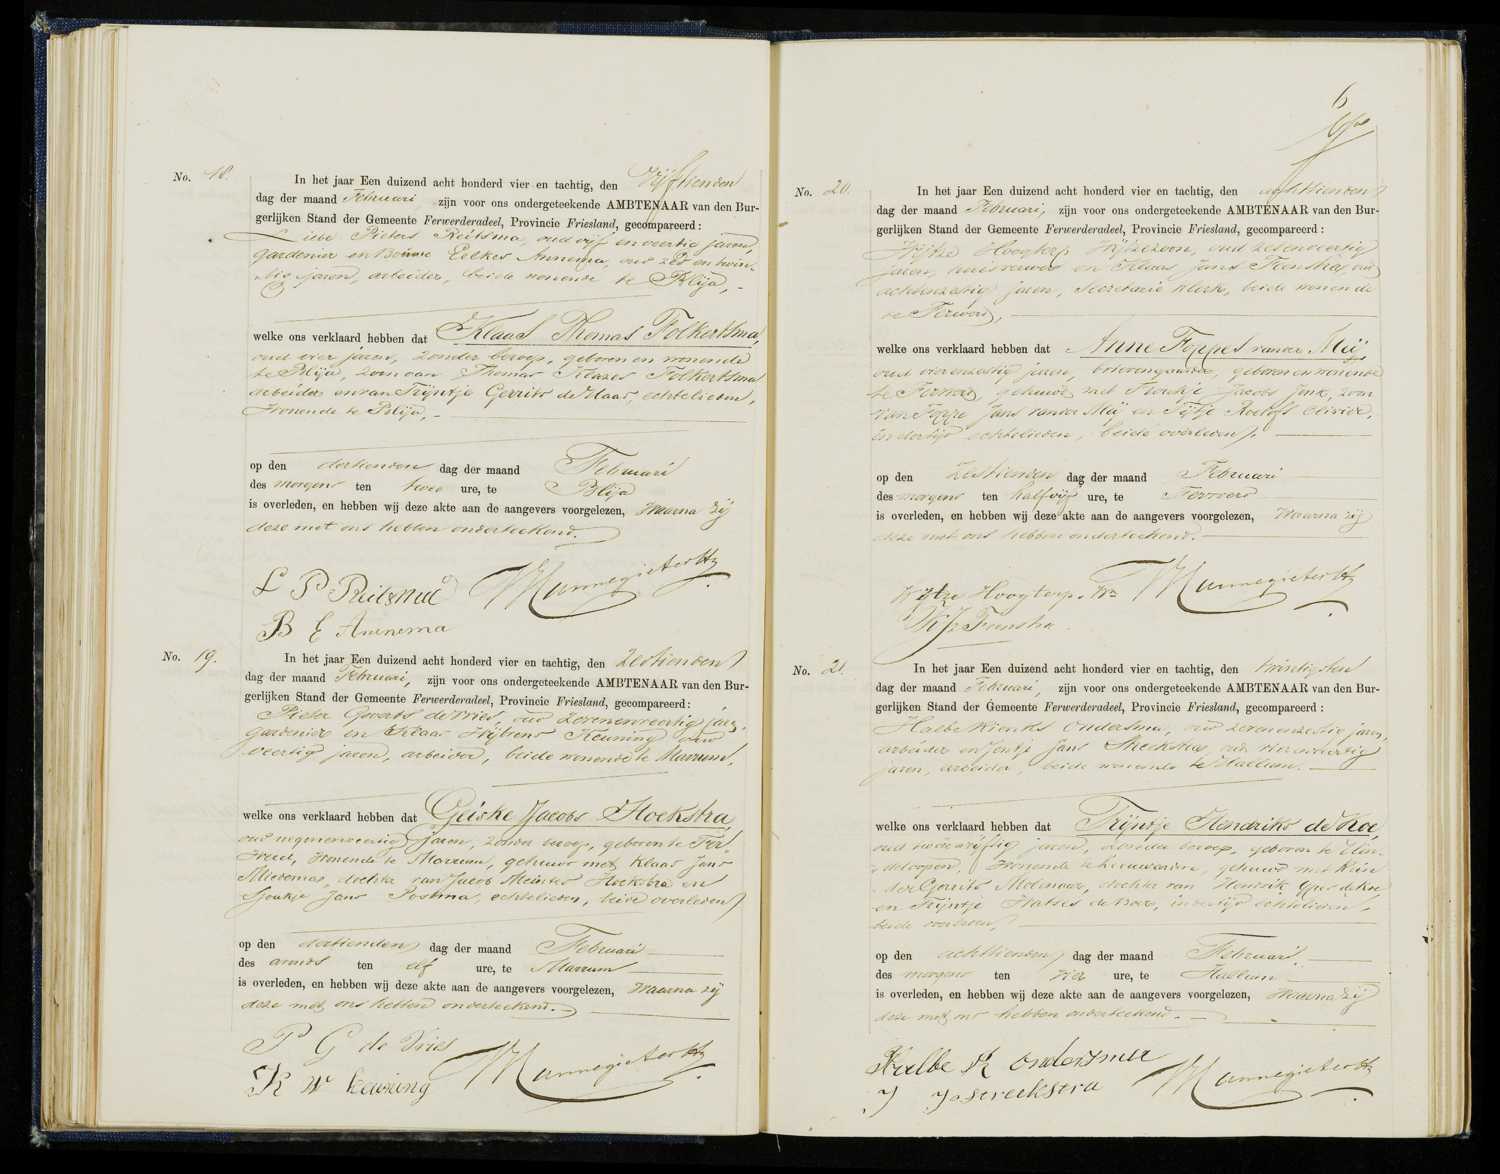 No. 18.
In het jaar Een duizend acht honderd vier en tachtig, den Vijftienden
dag der maand Februari zijn voor ons ondergeteekende AMBTENAAR van den Bur-
gerlijken Stand der Gemeente Ferwerderadeel, Provincie Friesland, gecompareerd:
Liebe Pieters Reitsma, oud vijf en veertig jaren,
gardenier en Bouwe Eelkes Annema, oud zes en twin-
tig jaren, arbeider, beide wonende te Blija,
welke ons verklaard hebben dat Klaas Thomas Folkertsma,
oud vier jaren, zonder beroep, geboren en wonende
te Blija, zoon van Thomas Klazes Folkertsma
arbeider en van Trijntje Gerrits de Haas, echtelieden,
wonende te Blija,
op den dertienden dag der maand Februari
des morgens ten twee ure, te Blija
is overleden, en hebben wij deze akte aan de aangevers voorgelezen, waarna zij
deze met ons hebben onderteekend.
L P Reitsma WMannegieterHz
B E Annema
No. 19.
In het jaar Een duizend acht honderd vier en tachtig, den Zestienden
dag der maand Februari, zijn voor ons ondergeteekende AMBTENAAR van den Bur-
gerlijken Stand der Gemeente Ferwerderadeel, Provincie Friesland, gecompareerd:
Pieter Geerts de Vries, oud zevenenveertig jaren,
gardenier en Klaas Wijbrens Keuning oud
veertig jaren, arbeider, beide wonende te Marrum,
welke ons verklaard hebben dat Geiske Jacobs Hoekstra
oud negenenveertig jaren, zonder beroep, geboren te Fer-
werd, wonende te Marrum, gehuwd met Klaas Jans
Miedema, dochter van Jacob Meinters Hoekstra en
Sjoukje Jans Postma, echtelieden, beide overleden
op den dertienden dag der maand Februari
des avonds ten elf ure, te Marrum
is overleden, en hebben wij deze akte aan de aangevers voorgelezen, waarna zij
deze met ons hebben onderteekend.
P G de Vries WMannegieterHz
K W Keuning
6
No. 20.
In het jaar Een duizend acht honderd vier en tachtig, den achttienden
dag der maand Februari, zijn voor ons ondergeteekende AMBTENAAR van den Bur-
gerlijken Stand der Gemeente Ferwerderadeel, Provincie Friesland, gecompareerd:
Wijtze Hoogterp Wijtzezoon, oud zesenveertig
jaren, en Klaas Jans Feenstra, oud
achtenzestig jaren, secretarie klerk, beide wonende
te Ferwerd,
welke ons verklaard hebben dat Anne Foppes van der Meij,
oud vierenzestig jaren, brievengaarder, geboren en wonende
te Ferwerd, gehuwd met Froukje Jacobs Jonk, zoon
van Foppe Jans van der Meij en Tijtje Roelofs Olivier,
in der tijd echtelieden, beide overleden,
op den Zestienden dag der maand Februari
des morgens ten half vijf ure, te Ferwerd
is overleden, en hebben wij deze akte aan de aangevers voorgelezen, waarna zij
deze met ons hebben onderteekend.
Wijtze Hoogterp. Wz WMannegieterHz
Feenstra
No. 21.
In het jaar Een duizend acht honderd vier en tachtig, den twintigsten
dag der maand Februari, zijn voor ons ondergeteekende AMBTENAAR van den Bur-
gerlijken Stand der Gemeente Ferwerderadeel, Provincie Friesland, gecompareerd:
Halbe Klerks Ondersma, oud zevenenzestig jaren,
arbeider en Jentje Jans Streekstra, oud vierenveertig
jaren, arbeider, beide wonende te Hallum.
welke ons verklaard hebben dat Trijntje Hendriks de Koe,
oud jaren, zonder beroep, geboren te Hin-
deloopen, wonende te Leeuwarden, gehuwd met Rein-
der Gerrits Molenaar, dochter van Hendrik de Koe
en Trijntje de Boer, in der tijd echtelieden,
beide overleden,
op den achttienden dag der maand Februari.
des morgens ten vier ure, te Hallum
is overleden, en hebben wij deze akte aan de aangevers voorgelezen, waarna zij
deze met ons hebben onderteekend.
Halbe K Ondersma WMannegieterHz
J J Streekstra